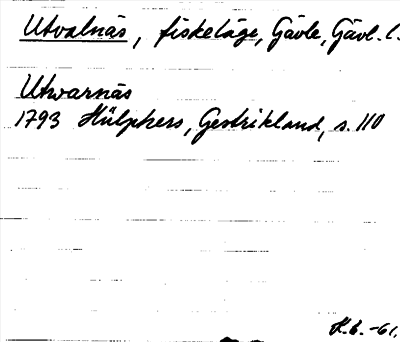 Utvalnäs, fiskeläge, Gävle, Gävl. l.
Utwarnäs
1793 Hülphers, Gestrikland, s. 110
H.b. -61.